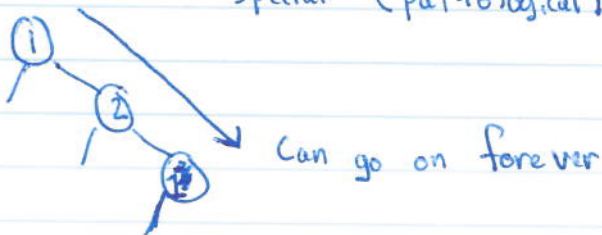 special (pathological)
1
2
Can go on forever